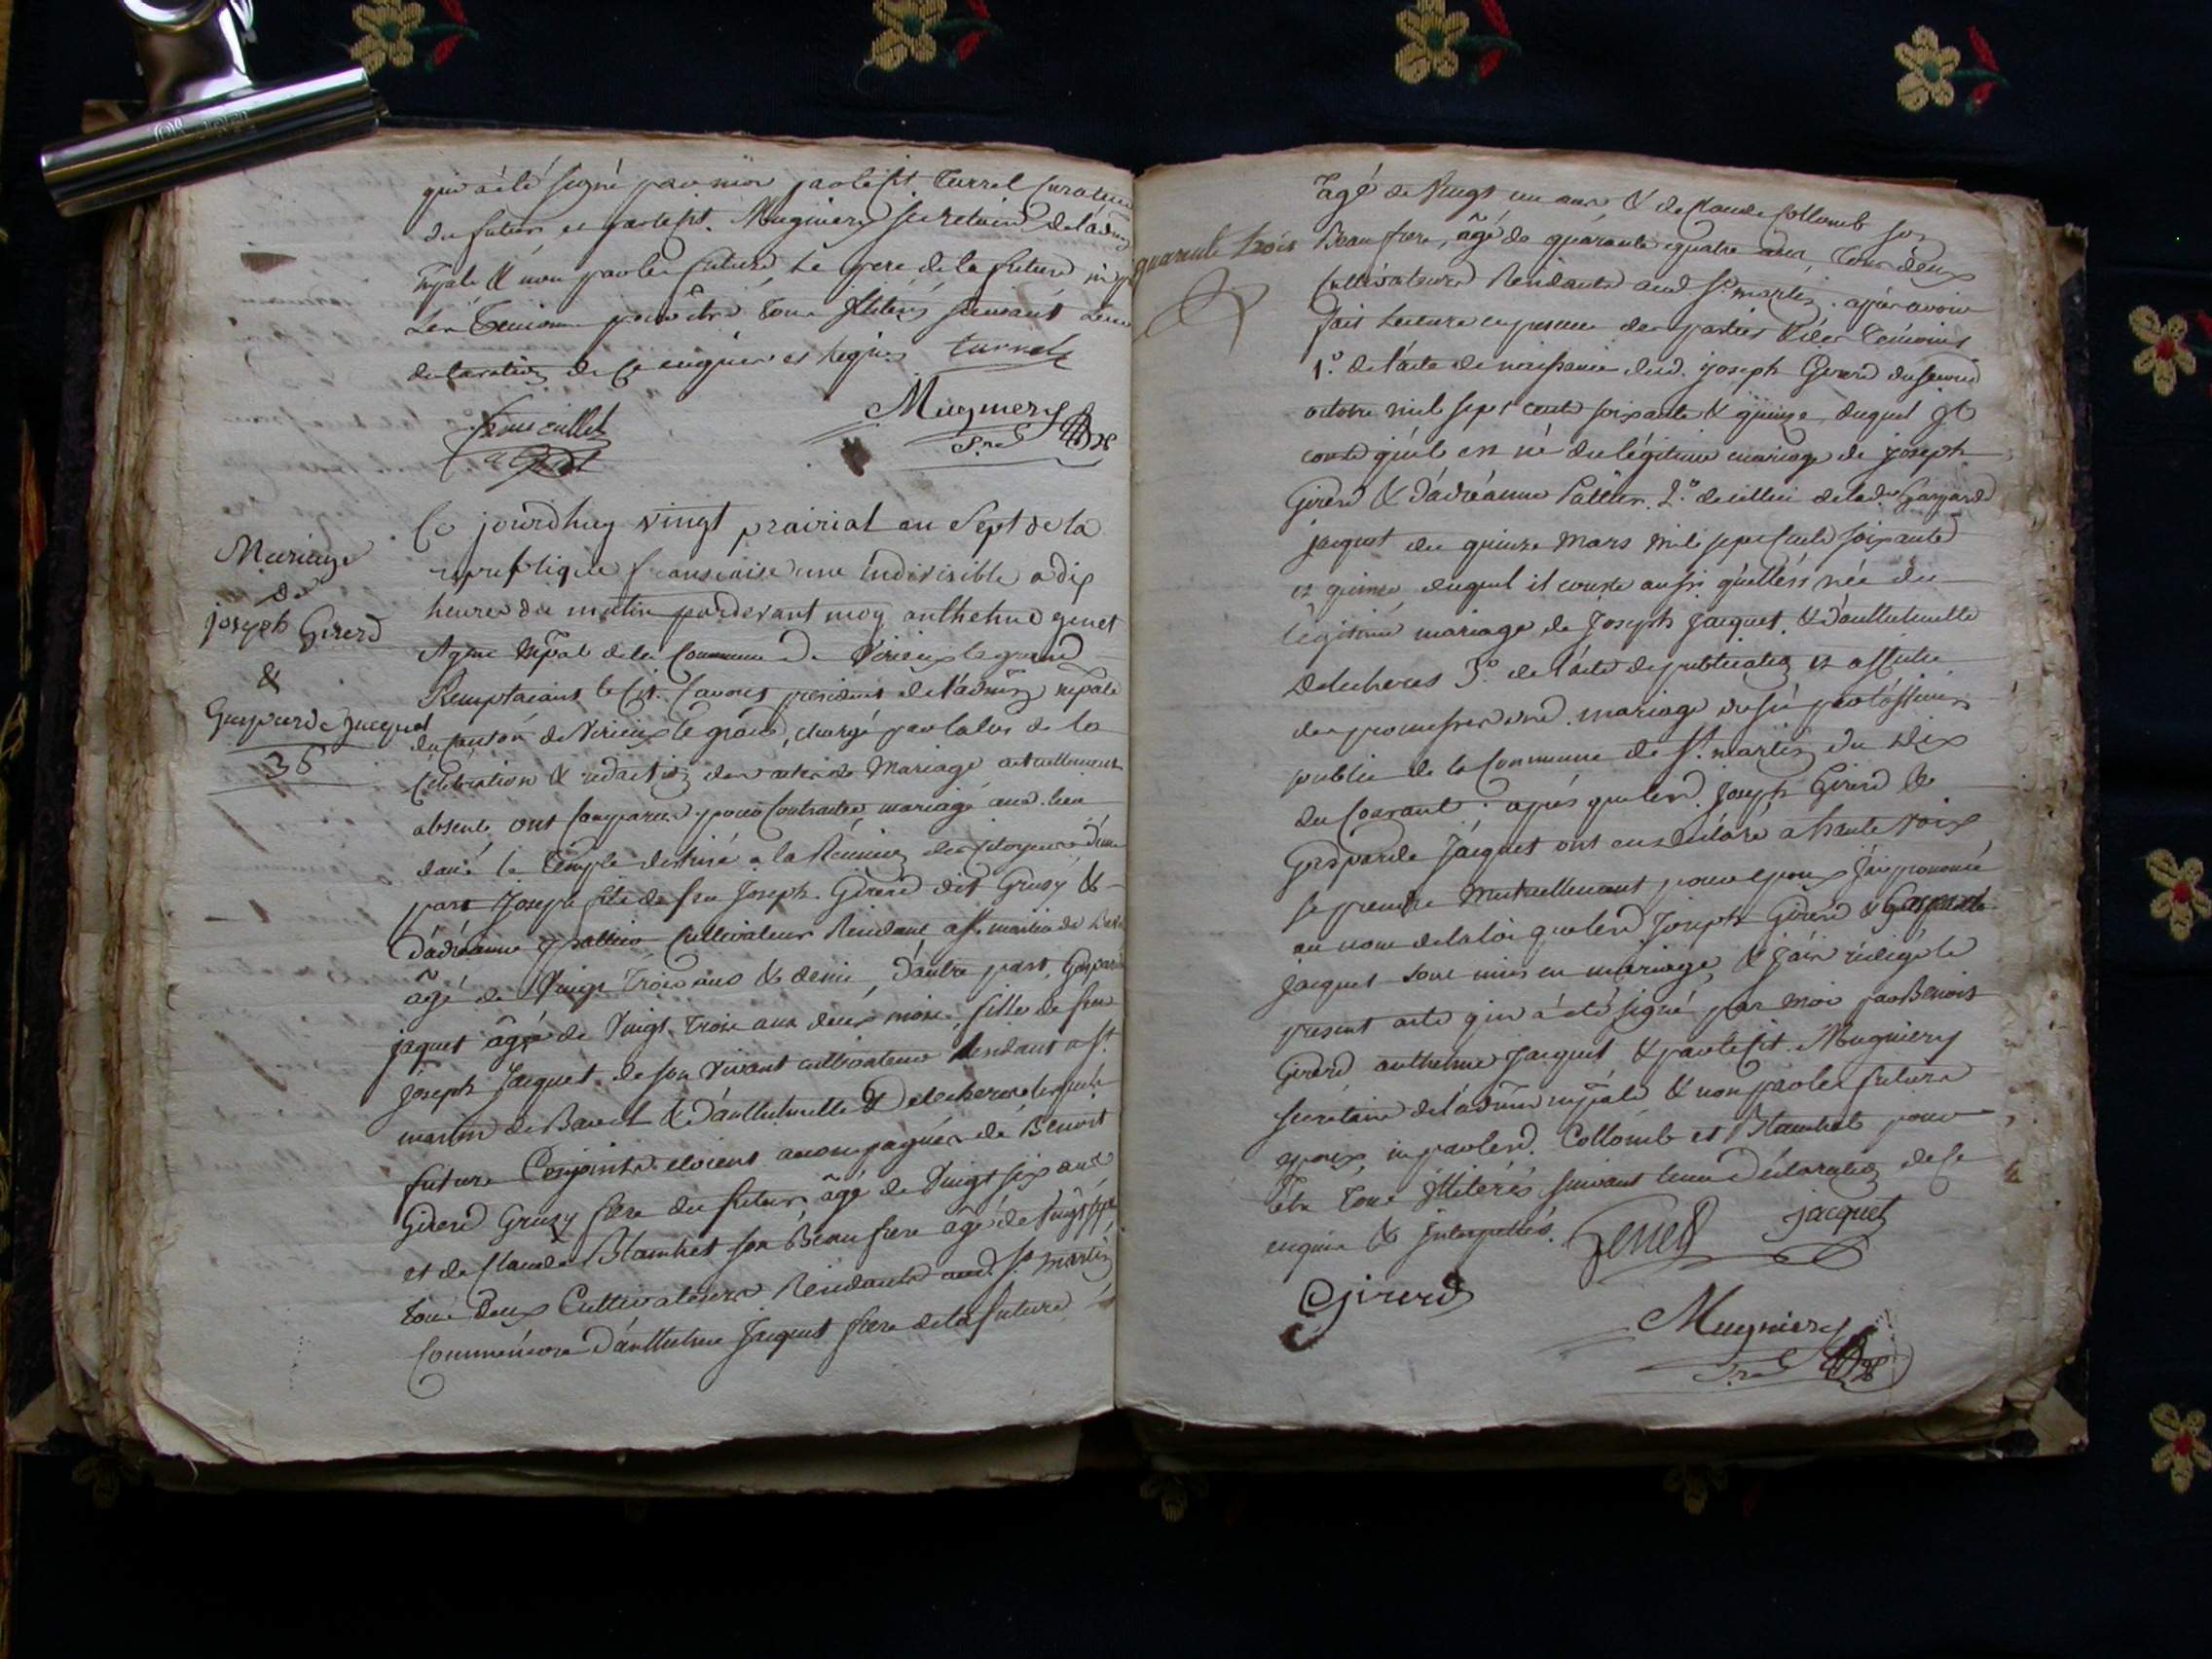 qui a été signé par moi par le cit. Turrel Curateur
du futur et par le cit. Mugniery secretaire de l'adm
mpale & non par les futurs, le pere de la future ni p
les Temoins pour être tous illiterés suivant leur
declaration de ce enquis et requis turrel
Mugniery
Sre
Mariage
de
joseph Girerd
&
Gasparde Jacquet
36
Ce jourdhuy vingt prairial an Sept de la
republique francaise une indivisible a dix
heures du matin pardevant moy anthelme genet
Agent Mpal de la Commune de Virieux le grand
Remplacant le Cit. Cavores president de l'admon mpale
du Canton de Virieux le grand, chargé par la loi de la
Celebration & redaction des actes de Mariage actuellement
absent, ont Comparu pour Contracter mariage aud. lieu
dans le Temple destiné a la Réunion des Citoyens d'une
part Joseph fils de feu Joseph Girerd dit Grusy &
d'adréanne pallier Cultivateur Residant a St. martin de Bavel
âgé de Vingt Trois ans & demi, d'autre part, Gasparde
jaquet âgée de Vingt Trois ans deux mois, fille de feu
Joseph Jacquet de son Vivant cultivateur Residant a St.
martin de Bavel & d'anthelmette Delecheres lesquels
futurs Conjoints etoient accompagnés de Benoit
Girerd Grusy frere du futur, âgé de Vingt six ans
et de Claude Blanchet son Beau frere âgé de Vingt sept
Tous deux Cultivateurs Residants aud. St. martin
Comme encore d'anthelme Jacquet frere de la future
quarante trois
âgé de Vingt un ans & de Claude Collomb son
Beau frere, âgé de quarante quatre ans, tous deux
Cultivateurs Residants aud St. martin. après avoir
fait lecture en presence des parties & des Temoins
1.° de l'acte de naissance dud. joseph Girerd du second
octobre mil sept cents soixante & quinze duquel il
conste qu'il est né du légitime mariage de joseph
Girerd & d'adréanne Pallier. 2.° de cellui de lade. Gasparde
jacquet du quinze Mars mil sept Cents soixante
et quinze, duquel il conste aussi qu'elle est née du
légitime mariage de Joseph Jacquet, & d'anthelmette
Delecheres 3.° de l'acte de publication et affiche
des promesses dud. mariage dressé par l'officier
public de la Commune de St. martin du Dix
du Courant; après que led. Joseph Girerd &
Gasparde Jacquet ont eus declaré a haute voix
se prendre Mutuellement pour epoux j'ai prononcé
au nom de la loi que led Joseph Girerd & Gasparde
jacquet sont unis en mariage, & j'ai redigé le
present acte qui a été signé par moi par Benoit
Girerd anthelme Jacquet, & par le cit. Mugniery
secretaire de l'admon mpale & non par les futurs
epoux ni par led. Collomb et Blanchet pour
être tous illiterés suivant leur declaration de ce
enquis & interpellés. Genet jacquet
Girerd
Mugniery
Sre